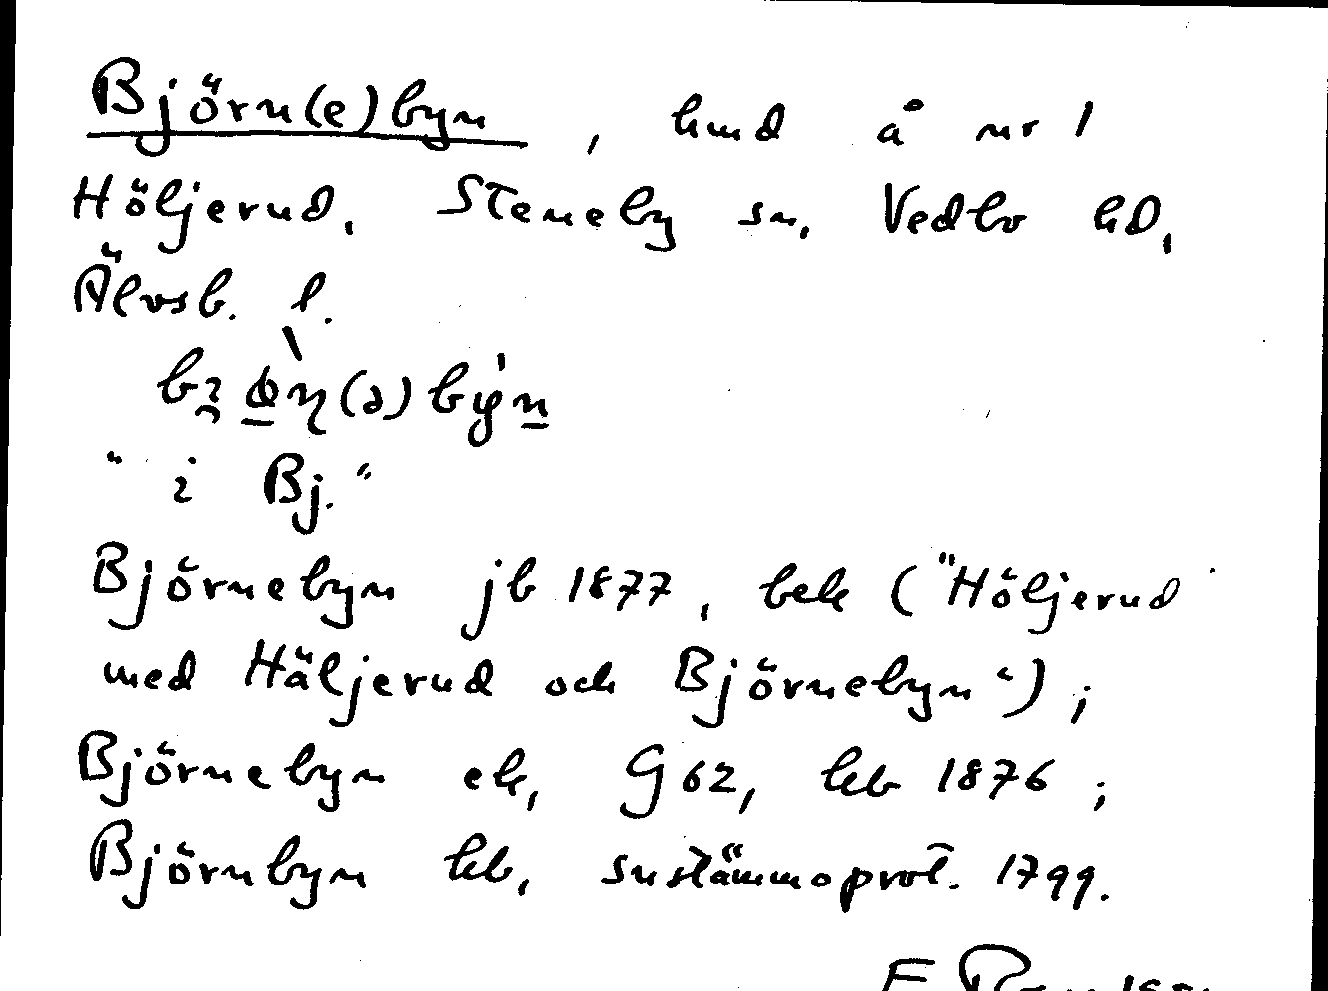 Björn(e)byn, hmd å nr 1
Höljerud, Steneby sn, Vedbo hd,
Älvsb. l.
"i Bj."
Björnebyn jb 1877, bek ("Höljerud
med Häljerud och Björnebyn");
Björnebyn ek, G 62, kb 1876;
Björnbyn kb, snstämmoprot. 1799.